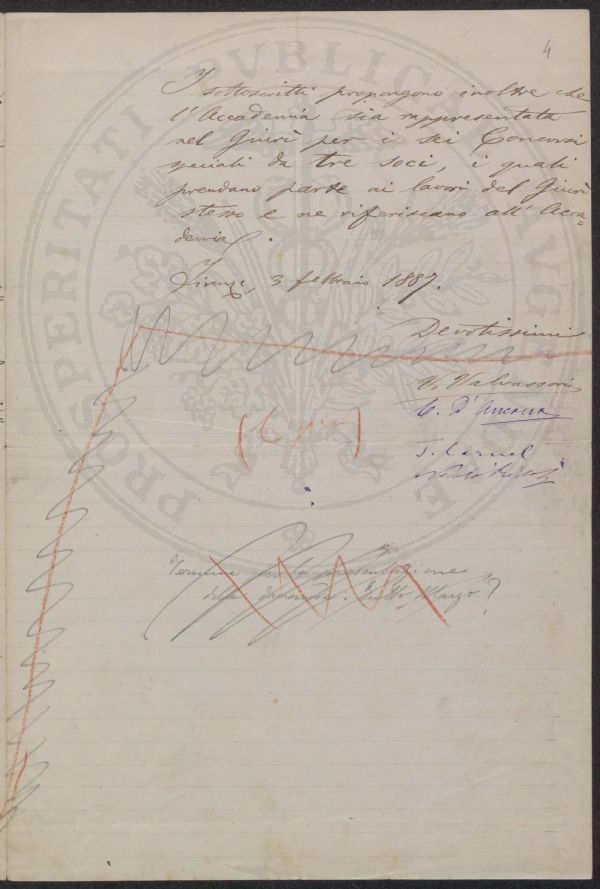 4
I sottoscritti propongono inoltre che
l'Accademia sia rappresentata
nel Giurì per i sei Concorsi
speciali da tre soci, i quali
prendano parte ai lavori del Giurì
stesso e ne riferiscano all'Acca=
demia.
Firenze, 3 febbraio 1887.
Devotissimi
V. Valvassori
C. D'Ancona
T. Caruel
Termine per la presentazione
delle domande. Tutto Marzo?
PROSPERITATI PVBLICAE AVGENDAE